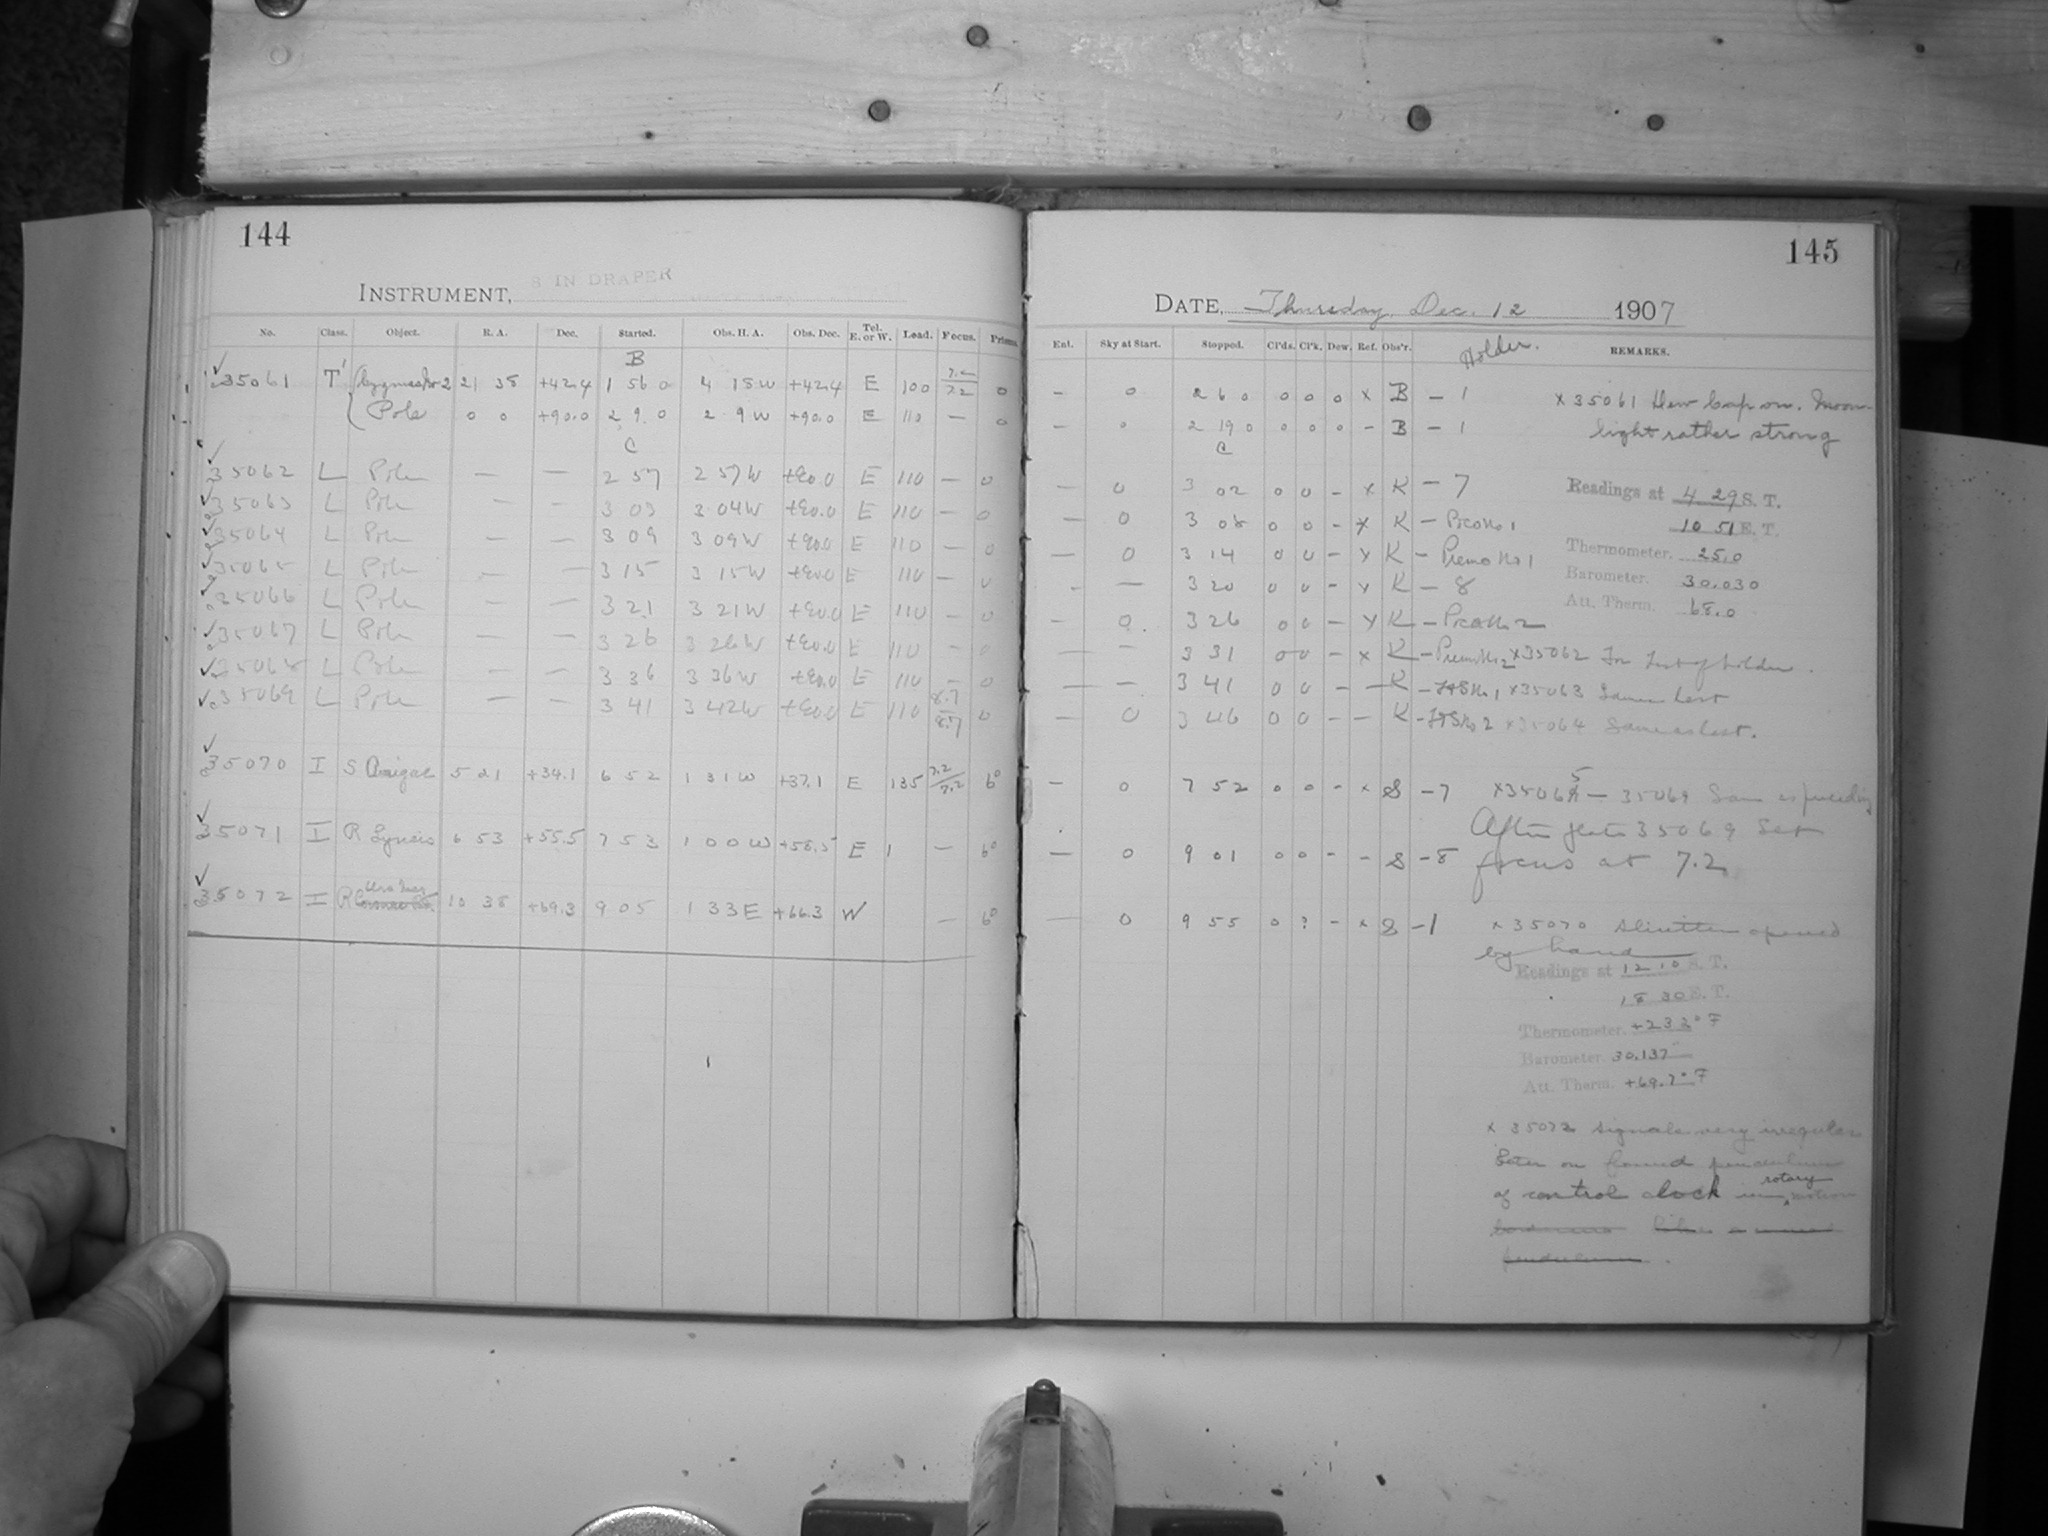 144
8 IN DRAPER
INSTRUMENT,
No. Class. Object. R. A. Dec. Started. Obs. H. A. Obs. Dec. Tel. E. or W. Load. Focus. Prisms.
B
35061 T' 2 21 38 +42.4 1 56 0 4 18 W +42.4 E 100 7.2 0
Pole 0 0 +90.0 2 9.0 2 9 W +90.0 E 110 — 0
C
35062 L Pole — — 2 57 2 57 W +90.0 E 110 — 0
35063 L Pole — — 3 03 3 04 W +90.0 E 110 — 0
35064 L Pole — — 3 09 3 09 W +90.0 E 110 — 0
35065 L Pole — — 3 15 3 15 W +90.0 E 110 — 0
35066 L Pole — — 3 21 3 21 W +90.0 E 110 — 0
35067 L Pole — — 3 26 3 26 W +90.0 E 110 — 0
35068 L Pole — — 3 36 3 36 W +90.0 E 110 — 0
35069 L Pole — — 3 41 3 42 W +90.0 E 110 8.7 8.7 0
35070 I S Aurigae 5 21 +34.1 6 52 1 31 W +37.1 E 135 7.2 7.2 6°
35071 I R Lyncis 6 53 +55.5 7 53 1 00 W +58.5 E 1 — 6°
35072 I R Ursa Maj 10 38 +69.3 9 05 1 33 E +66.3 W — 6°
145
DATE, Thursday, Dec. 12 1907
Ent. Sky at Start. Stopped. Cl'ds. Cl'k. Dew. Ref. Obs'r. Holder. REMARKS.
— 0 2 6 0 0 0 0 x B — 1 x 35061 Dew cap on. Moon-
— 0 2 19 0 0 0 0 — B — 1 light rather strong
C
— 0 3 02 0 0 — x K — 7 Readings at 4 29 S. T.
— 0 3 08 0 0 — x K — No 1 10 51 E. T.
— 0 3 14 0 0 — x K — Premo No 1 Thermometer. 25.0
— — 3 20 0 0 — x K — 8 Barometer. 30.030
— 0 3 26 0 0 — x K — No 2 Att. Therm. 68.0
— — 3 31 0 0 — x K — Premo No 2 x 35062 For test of holder.
— — 3 41 0 0 — — K — No 1 x 35063 Same as last
— 0 3 46 0 0 — — K — No 2 x 35064 Same as last.
— 0 7 52 0 0 — x S — 7 x 35065 — 35069 Same as preceding
After plate 35069 Set
— 0 9 01 0 0 — — S — 8 focus at 7.2
— 0 9 55 0 ? — x S — 1 x 35070 Shutter opened
by hand
Readings at 12 10 S. T.
18 30 E. T.
Thermometer. +23° F
Barometer. 30.137"
Att. Therm. +69.2° F
x 35072 Signals very irregular
Later on found pendulum
of control clock in rotary motion
pendulum